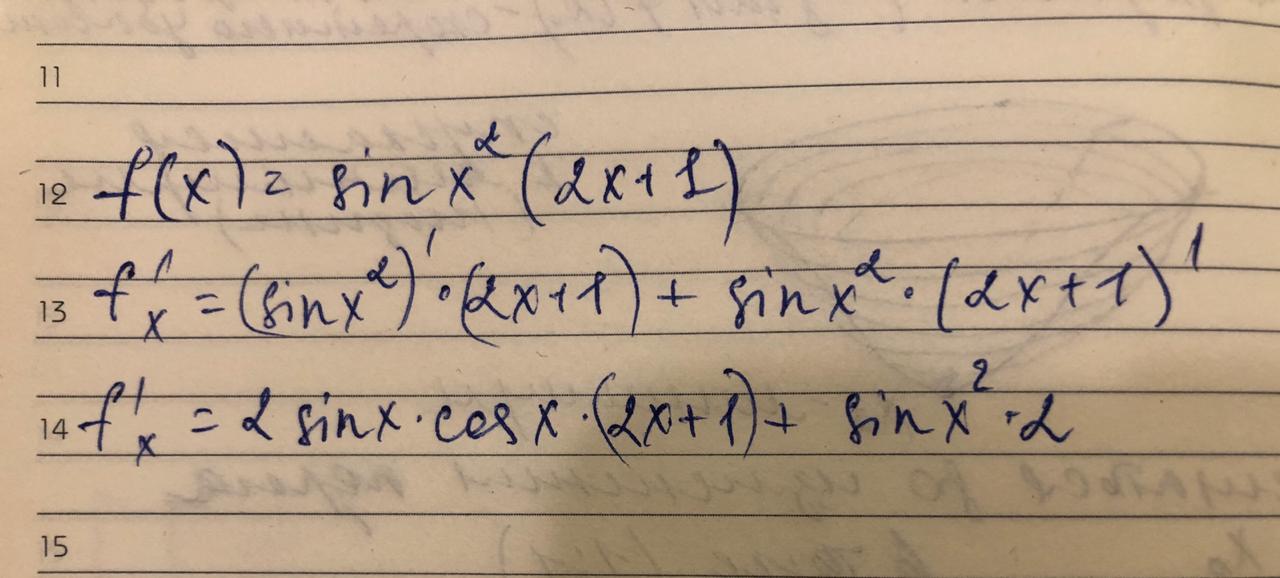 11
12 f(x) = sin x² (2x+1)
13 f'ₓ = (sin x²)' · (2x+1) + sin x² · (2x+1)'
14 f'ₓ = 2 sin x · cos x · (2x+1) + sin x² · 2
15